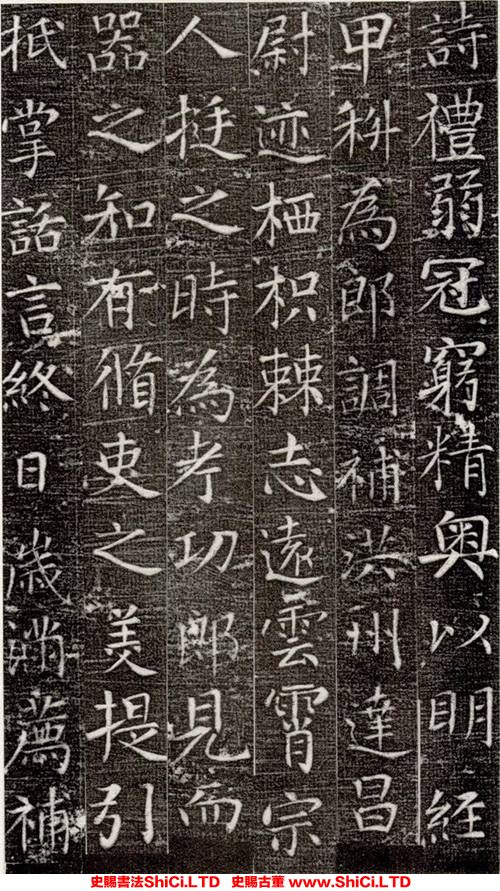 詩禮弱冠窮精奥以明經
甲科為郎調補洪州達昌
尉迹栖枳棘志遠雲霄宗
人挺之時為考功郎見而
器之知有脩吏之美提引
抵掌話言終日歲滿薦補
史賜書法ShiCi.LTD 史賜古董 www.ShiCi.LTD